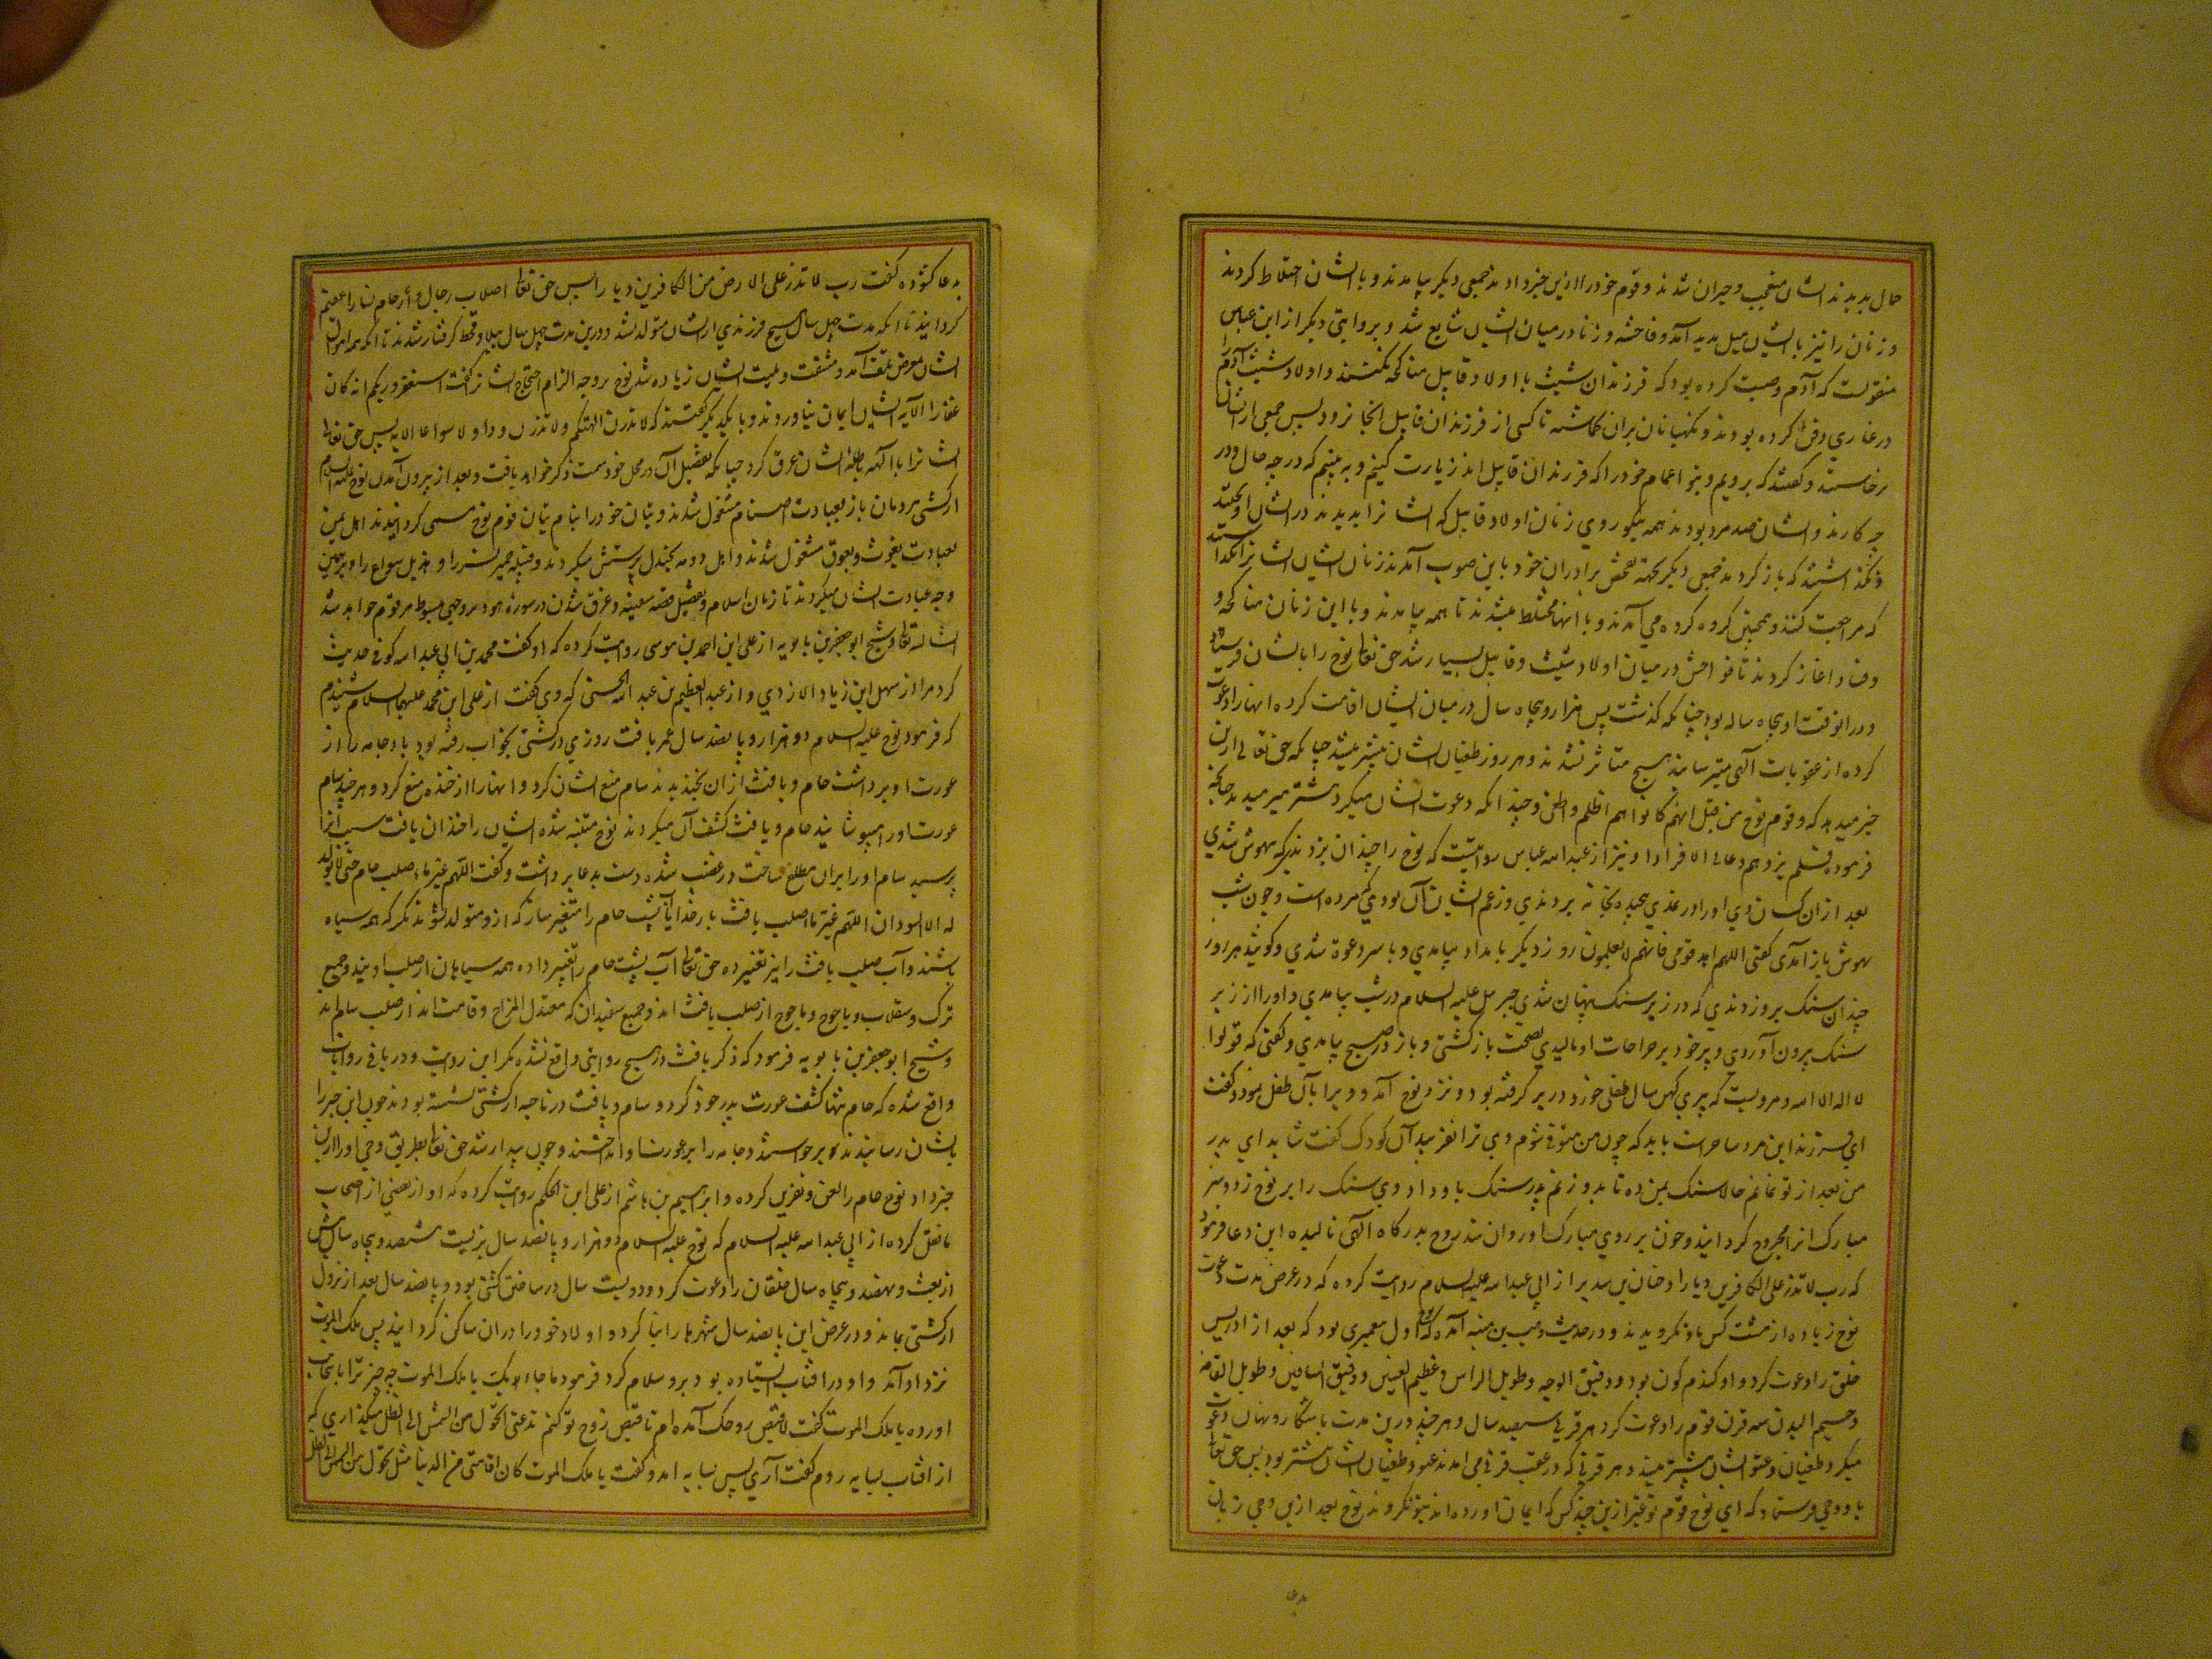 حال بدیدند ایشان متعجب و حیران شدند و قوم خود را ازین خبر دادند جمعی دیگر بیامدند و با ایشان اختلاط کردند
و زنان را نیز با ایشان میل پدید آمد و فاحشه و زنا در میان ایشان شایع شد و بروایتی دیگر از ابن عباس
منقولست که آدم وصیت کرده بود که فرزندان شیث با اولاد قابیل مناکحه نکنند و اولاد شیث آدم را
در غاری دفن کرده بودند و نکهبانان بران کماشته تا کسی از فرزندان قابیل انجا نرود پس جمعی از ایشان
برخاستند و کفتند که برویم و بنو اعمام خود را که فرزندان قابیل اند زیارت کنیم و به بینیم که در چه حال و در
چه کارند و ایشان صد مرد بودند همه نیکو روی زنان اولاد قابیل که ایشانرا بدیدند در ایشان اویختند
و نکذاشتند که باز کردند جمعی دیکر بجهة تفحص برادران خود باین صوب آمدند زنان ایشان ایشانرا نکذاشتند
که مراجعت کنند و همچنین کروه کروه می آمدند و با انها مختلط میشدند تا همه بیامدند و با این زنان مناکحه و
فساد اغاز کردند تا فواحش در میان اولاد شیث و قابیل بسیار شد حق تعالی نوح را بایشان فرستاد
و در انوقت او پنجاه ساله بود چنانکه کذشت پس هزار و پنجاه سال در میان ایشان اقامت کرده انها را دعوت
کرده از عقوبات آلهی میترسانید هیچ متاثر نشدند و هر روز طغیان ایشان بیشتر میشد چنانکه حق تعالی ازین
خبر میدهد که و قوم نوح من قبل انهم کانوا هم اظلم و اطغی و چندانکه دعوت ایشان میکرد بیشتر میرمیدند چنانکه
فرمود فلم یزدهم دعائی الا فرارا و نیز از عبد الله عباس روایتست که نوح را چندان بزدندی که بیهوش شدی
بعد ازان کسان وی او را در نمدی پیچیده بخانه بردندی و زعم ایشان آن بودی که مرده است و چون شب
بهوش باز آمدی کفتی اللهم اهد قومی فانهم لا یعلمون روز دیکر بامداد بیامدی و با سر دعوة شدی و کویند هر روز
چندان سنک برو زدندی که در زیر سنک پنهان شدی جبرئیل علیه السلام در شب بیامدی و او را از زیر
سنک بیرون آوردی و پر خود بر جراحات او مالیدی بصحت باز کشتی و باز در صبح بیامدی و کفتی که قولوا
لا اله الا الله و مرویست که پیری کهن سال طفلی خورد در بر کرفته بود و نزد نوح آمد و ویرا بآن طفل نمود و کفت
ای فرزند این مرد ساحرست باید که چون من متوفی شوم وی ترا نفریبد آن کودک کفت شاید ای پدر
من بعد از تو نمانم حالا سنک بمن ده تا بدو زنم پدر سنک باو داد وی سنک را بر نوح زد و سر
مبارک انرا مجروح کردانید و خون بر روی مبارک او روان شد روح بدرکاه آلهی نالیده این دعا فرمود
که رب لا تذر علی الکافرین دیارا و حنان بن سدیر از ابی عبد الله علیه السلام روایت کرده که در عرض مدت دعوت
نوح زیاده از هشت کس باو نکرویدند و در حدیث وهب بن منبه آمده که نوح اول پیغمبری بود که بعد از ادریس
خلق را دعوت کرد و او کندم کون بود و دقیق الوجه و طویل الراس و عظیم العینین و دقیق الساقین و طویل القامة
و جسیم البدن سه قرن قوم را دعوت کرد هر قرنی سیصد سال و هر چند درین مدت باشکار و نهان دعوت
میکرد طغیان و عتو ایشان بیشتر میشد و هر قرنی که در عقب قرنی می امدند عتو و طغیان ایشان بیشتر بود پس حق تعالی
باو وحی فرستاد که ای نوح قوم تو غیر ازین چند کس که ایمان اورده اند بتو نکروند نوح بعد ازین وحی زبان
بدعا
بدعا کشوده کفت رب لا تذر علی الارض من الکافرین دیارا پس حق تعالی اصلاب رجال و ارحام نسا را عقیم
کردانید تا انکه مدت چهل سال هیچ فرزندی از ایشان متولد نشد و درین مدت چهل سال ببلا و قحط کرفتار شدند تا انکه همه اموال
ایشان معرض تلف آمد و مشقت و بلیت ایشان زیاده شد نوح بر وجه الزام احتجاج ایشانرا کفت استغفروا ربکم انه کان
غفارا الآیه ایشان ایمان نیاوردند و با یکدیکر کفتند که لا تذرن الهتکم و لا تذرن ودا و لا سواعا الایه پس حق تعالی
ایشانرا با الهه باطله ایشان غرق کرد چنانکه تفصیل آن در محل خود سمت ذکر خواهد یافت و بعد از بیرون آمدن نوح علیه السلام
از کشتی مردمان باز بعبادت اصنام مشغول شدند و بتان خود را بنام بتان قوم نوح مسمی کردانیدند اهل یمن
بعبادت یغوث و یعوق مشغول شدند و اهل دومه جندل پرستش میکردند و قبیله حمیر نسر را و هذیل سواع را و برهمین
وجه عبادت ایشان میکردند تا زمان اسلام و تفصیل قصه سفینه و غرق شدن در سورهٔ هود بر وجهی مبسوط مرقوم خواهد شد
انشاالله تعالی و شیخ ابو جعفر بن بابویه از علی ابن احمد بن موسی روایت کرده که او کفت محمد بن ابی عبد الله کوفی حدیث
کرد مرا از سهل ابن زیاد الازدی و از عبد العظیم بن عبد الله الحسنی که وی کفت از علی ابن محمد علیهما السلام شنیدم
که فرمود نوح علیه السلام دو هزار و پانصد سال عمر یافت روزی در کشتی بخواب رفته بود باد جامه را از
عورت او برداشت حام و یافث ازان بخندیدند سام منع ایشان کرد و انها را از خنده منع کرد و هر چند سام
عورت او را میپوشانید حام و یافث کشف آن میکردند نوح متنبه شده ایشان را خندان یافت سبب انرا
پرسید سام او را بران مطلع ساخت در غضب شده دست بدعا برداشت و کفت اللهم غیر ماء صلب حام حتی لا یولد
له الا السودان اللهم غیر ماء صلب یافث بار خدایا آب پشت حام را متغیر ساز که ازو متولد نشوند مکر که همه سیاه
باشند و آب صلب یافث را نیز تغییر ده حق تعالی آب پشت حام را تغییر داده همه سیاهان از صلب اویند و جمیع
ترک و سقلاب و یاجوج و ماجوج از صلب یافث اند و جمیع سفیدان که معتدل المزاج و قامت اند از صلب سام اند
و شیخ ابو جعفر بن بابویه فرمود که ذکر یافث در هیچ روایتی واقع نشده مکر این روایت و در باقی روایات
واقع شده که حام تنها کشف عورت پدر خود کرد و سام و یافث در ناحیه از کشتی نشسته بودند چون این خبر را
بایشان رسانیدند برخواستند و جامه را بر عورت او انداختند و چون بیدار شد حق تعالی بطریق وحی او را ازین
خبر داد نوح حام را لعن و نفرین کرده و ابراهیم بن هاشم از علی ابن الحکم روایت کرده که او از بعضی از اصحاب
ما نقل کرده از ابی عبد الله علیه السلام که نوح علیه السلام دو هزار و پانصد سال بزیست هشتصد و پنجاه سال پیش
از بعثت و نهصد و پنجاه سال خلقان را دعوت کرد و دویست سال در ساختن کشتی بود و پانصد سال بعد از نزول
از کشتی بماند و در عرض این پانصد سال شهرها را بنا کرد و اولاد خود را دران ساکن کردانید پس ملک الموت
نزد او آمد و او در آفتاب ایستاده بود برو سلام کرد فرمود ما جاء بک یا ملک الموت چه چیز ترا باینجانب
اورده یا ملک الموت کفت لاقبض روحک آمده ام تا قبض روح تو کنم تدعنی اتحول من الشمس الی الظل میکذاری که
از افتاب بسایه روم کفت آری پس بسایه امد و کفت یا ملک الموت کان اقامتی فی الدنیا مثل تحول من الشمس الی الظل